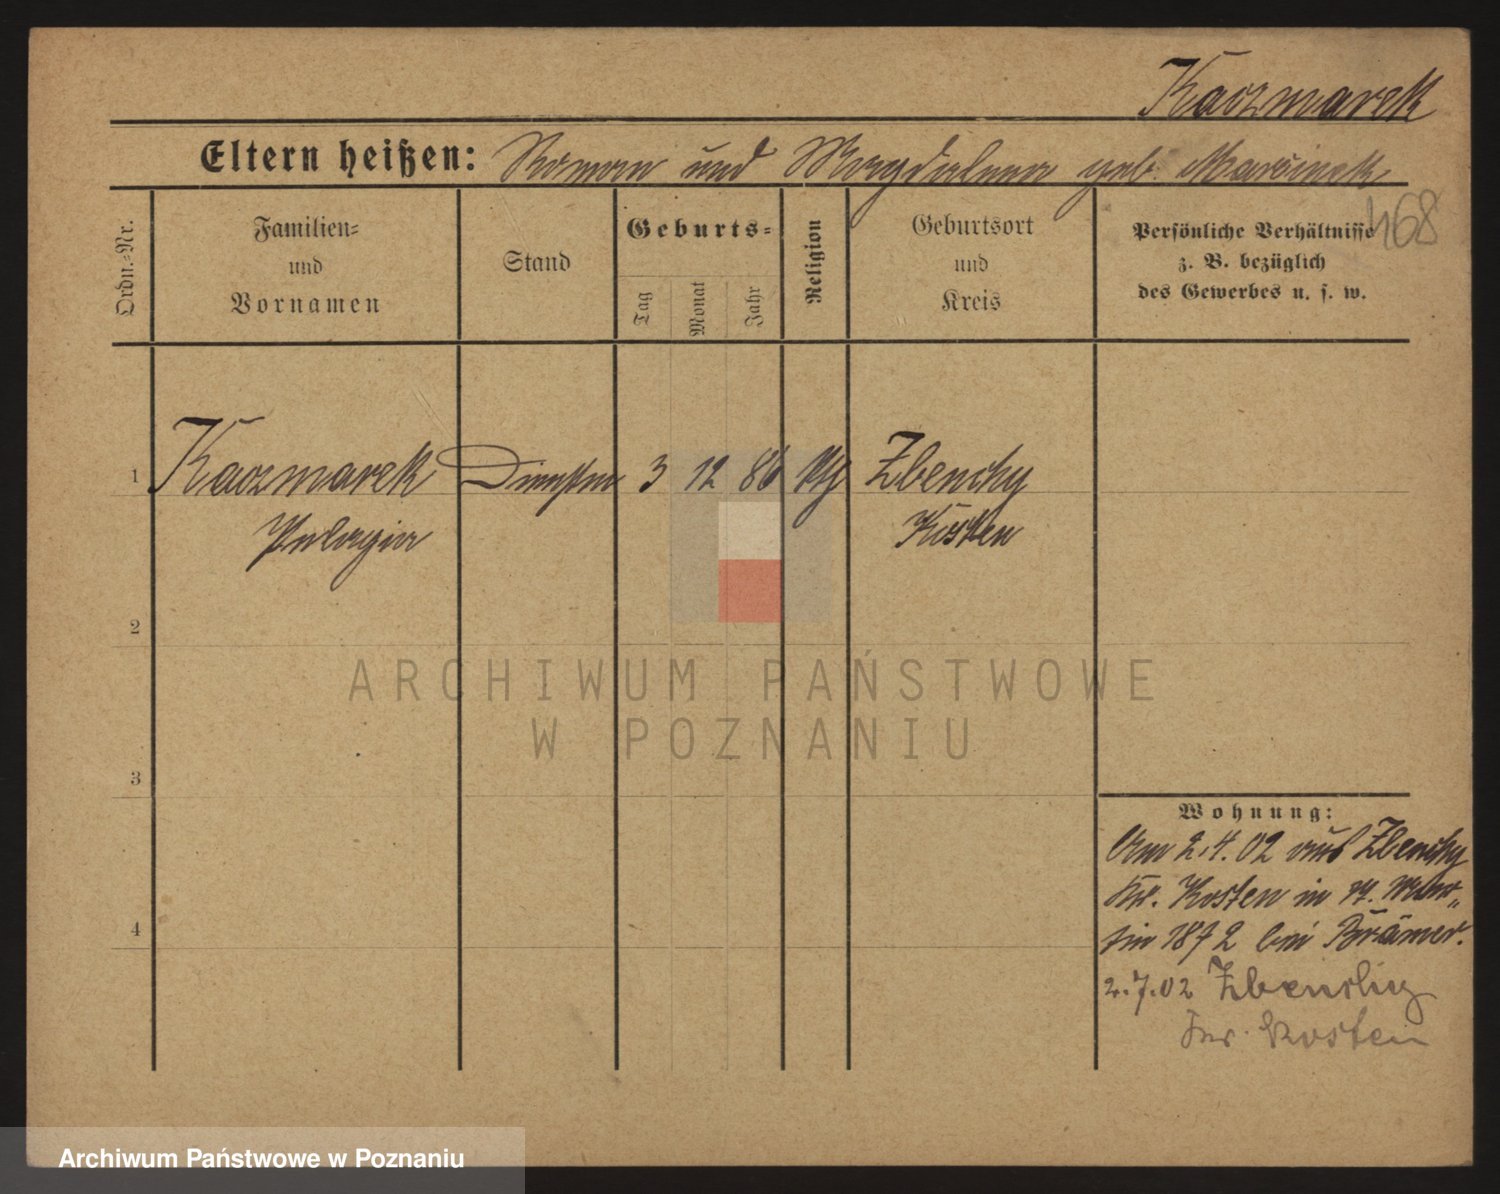 Kaczmarek
Eltern heißen: Roman und Magdalena geb. Marcinek
468
Ordn.-Nr.
Familien-
und
Vornamen
Stand
Geburts-
Tag
Monat
Jahr
Religion
Geburtsort
und
Kreis
Persönliche Verhältnisse
z. B. bezüglich
des Gewerbes u. s. w.
1 Kaczmarek 3 12 86 Zbenchy
Pelagia Kosten
2
3
4
Wohnung:
Am 2.4.02 aus Zbenchy
Kr. Kosten in
187 2 bei Brämer.
2.7.02 Zbenchy
Kr. Kosten
ARCHIWUM PAŃSTWOWE
W POZNANIU
Archiwum Państwowe w Poznaniu